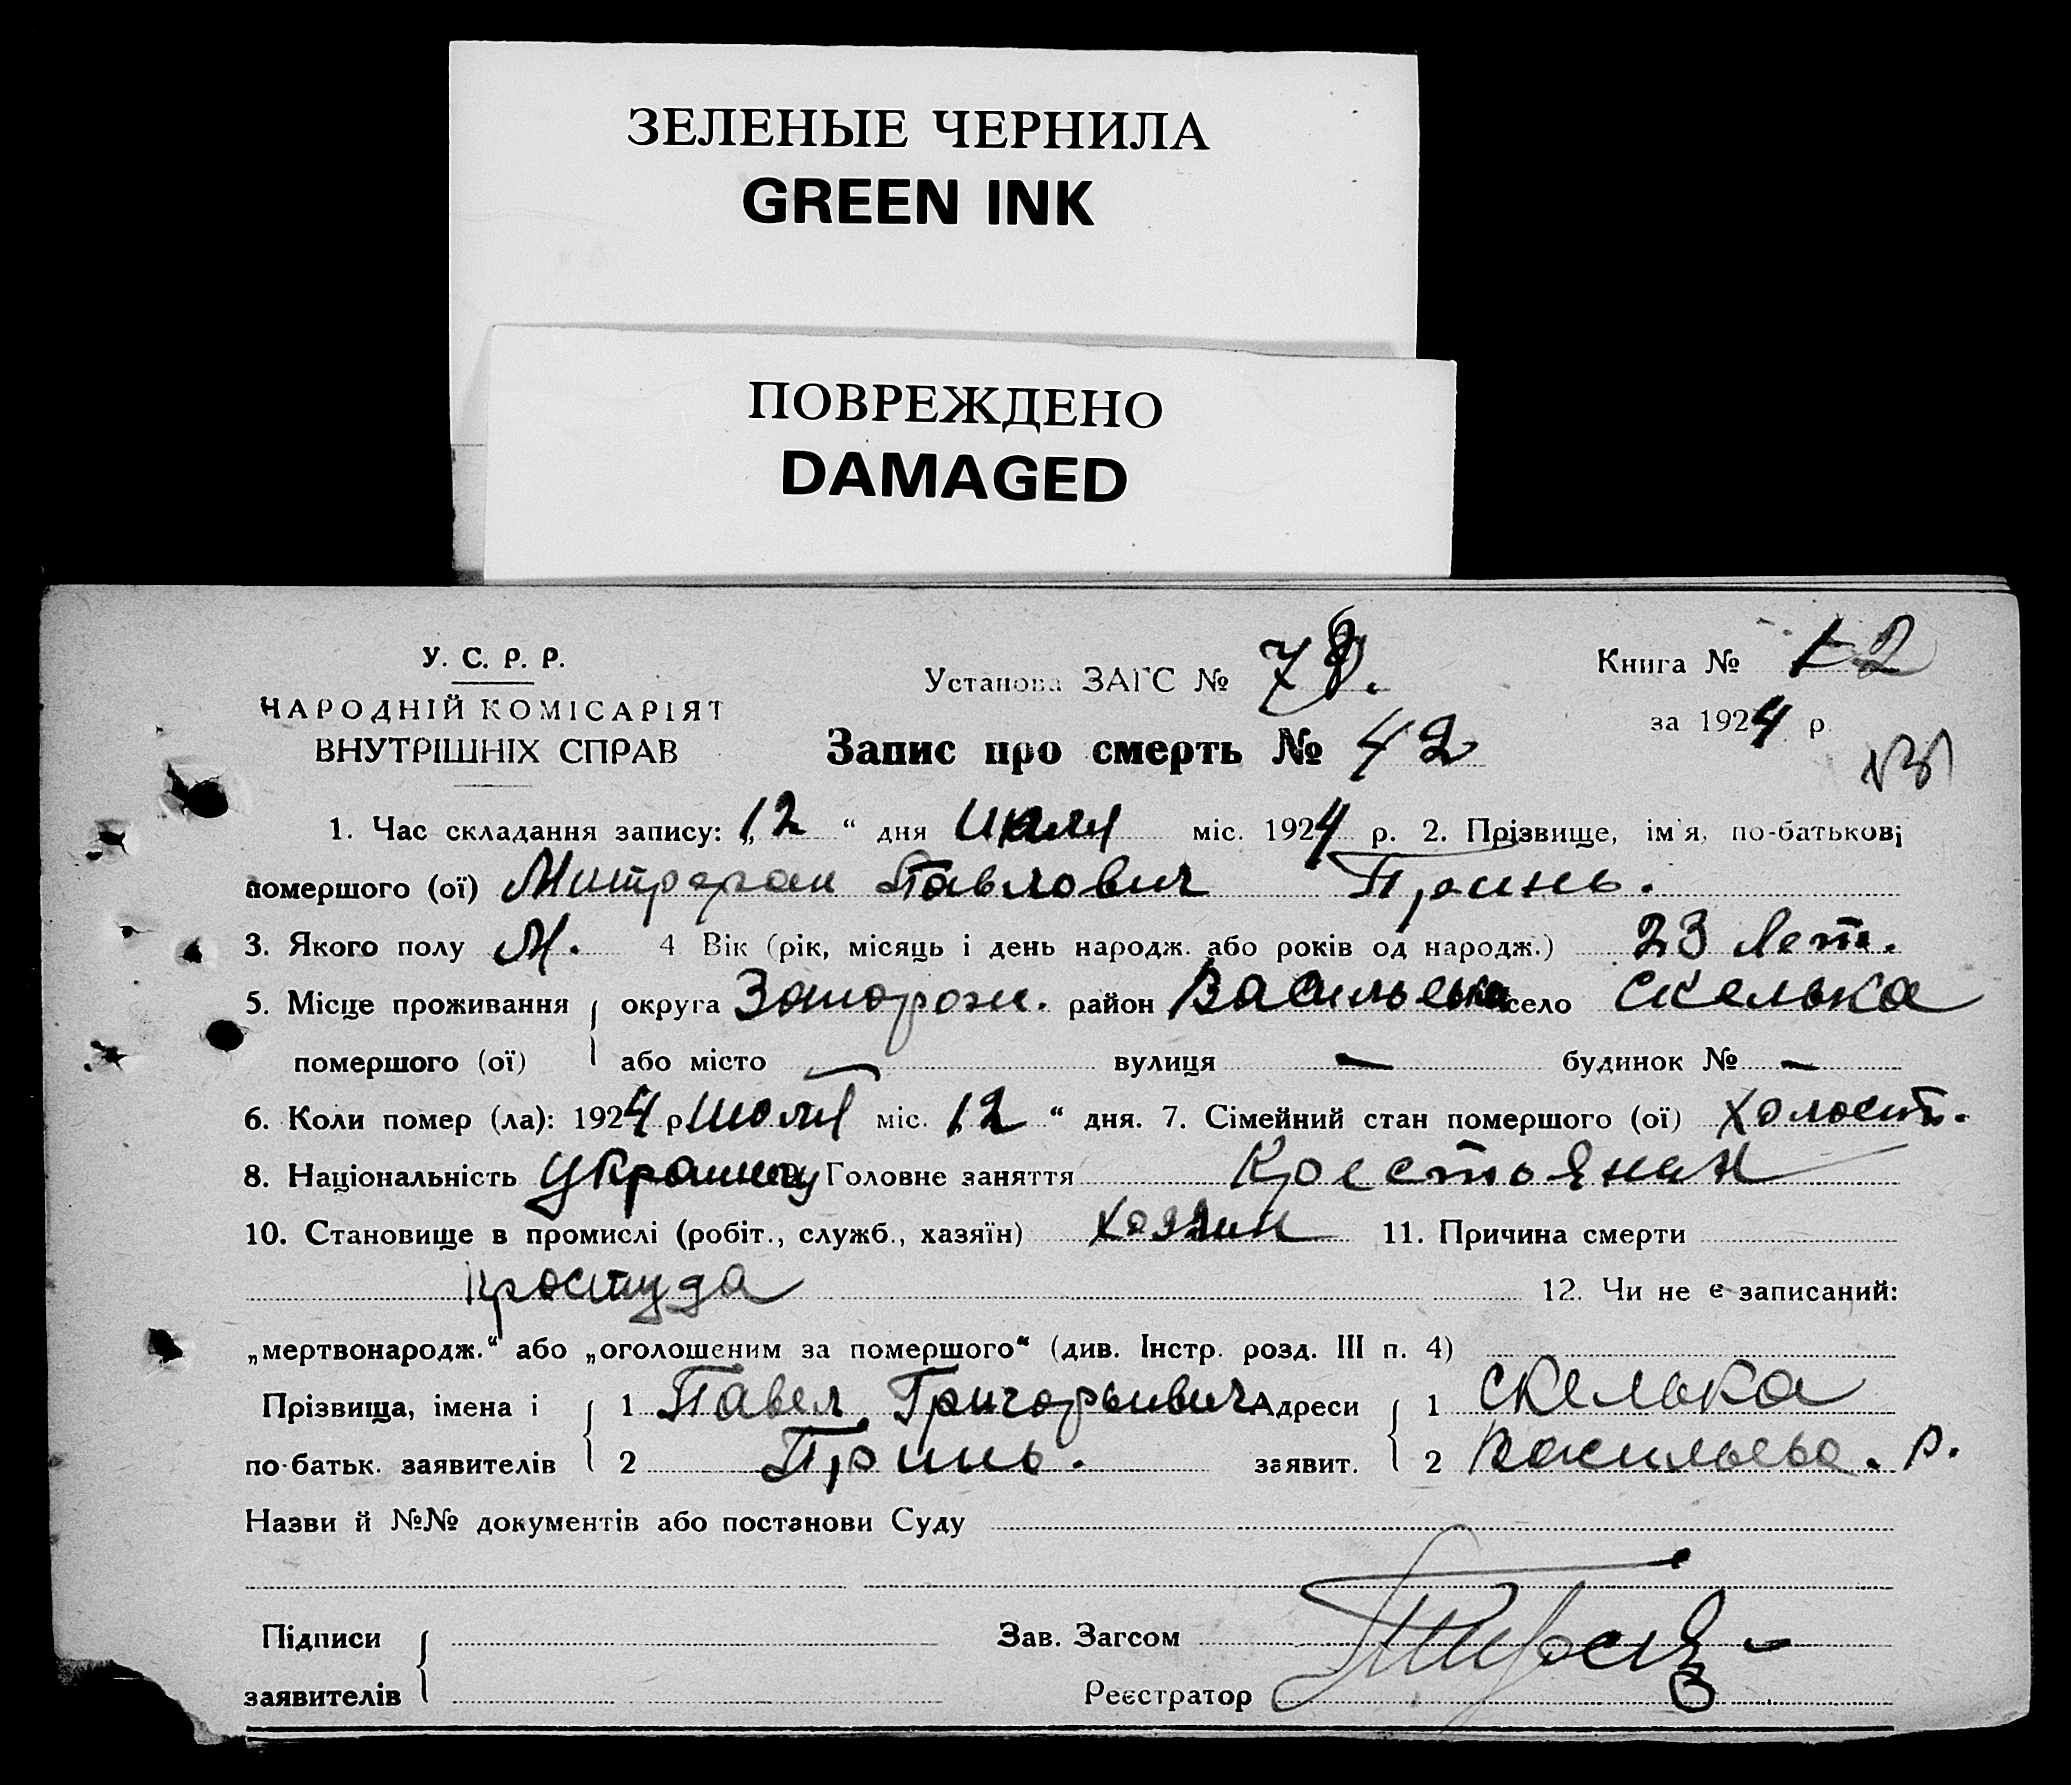 ЗЕЛЕНЫЕ ЧЕРНИЛА
GREEN INK
ПОВРЕЖДЕНО
DAMAGED
У. С. Р. Р.
НАРОДНІЙ КОМІСАРІЯТ
ВНУТРІШНІХ СПРАВ
Установа ЗАГС №
Книга № 2
за 1924 р.
Запис про смерть № 42
1. Час складання запису: „12“ дня Июля міс. 1924 р. 2. Прізвище, ім'я, по-батькові
помершого (ої) Митрофан Павлович Принь.
3. Якого полу М. 4 Вік (рік, місяць і день народж. або років од народж.) 23 лет.
5. Місце проживання округа Запорож. район Васильевка село Скелька
помершого (ої) або місто — вулиця — будинок № —
6. Коли помер (ла): 1924 р Июля міс. 12 “ дня. 7. Сімейний стан помершого (ої) Холост.
8. Національність Украинец Головне заняття Крестьянин
10. Становище в промислі (робіт., служб., хазяїн) Хозяин 11. Причина смерти
простуда 12. Чи не є записаний:
„мертвонародж.“ або „оголошеним за помершого“ (див. Інстр. розд. III п. 4)
Прізвища, імена і 1 Павел Григорьевич Адреси 1 Скелька
по-батьк. заявителів 2 Принь. заявит. 2 Васильева. р.
Назви й №№ документів або постанови Суду
Підписи Зав. Загсом
заявителів Реєстратор